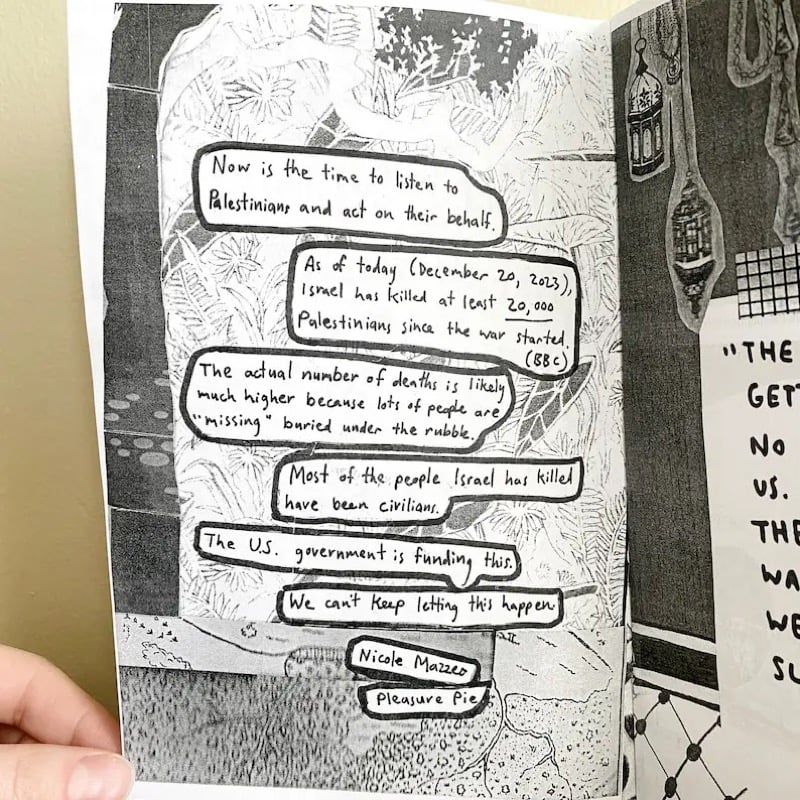 Now is the time to listen to
Palestinians and act on their behalf.
As of today (December 20, 2023),
Israel has killed at least 20,000
Palestinians since the war started.
(BBC)
The actual number of deaths is likely
much higher because lots of people are
"missing" buried under the rubble.
Most of the people Israel has killed
have been civilians.
The U.S. government is funding this.
We can't keep letting this happen.
Nicole Mazzeo
Pleasure Pie
"THE
GETT
NO
US.
THE
WA
WE
SU